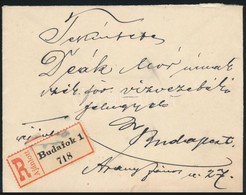 Tekintetes
Deák Mór úrnak
felügyelő
Budapest
Arany János u. 27.
R
Ajánlott
Budafok 1
718